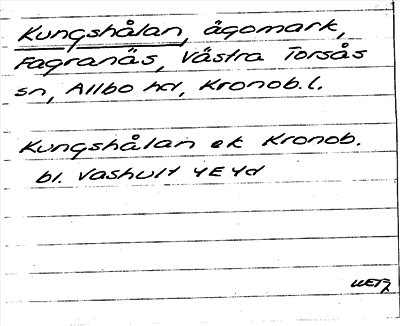 Kungshålan, ägomark,
Fagranäs, Västra Torsås
sn, Allbo hd, Kronob.l.
Kungshålan ek Kronob.
bl. Vashult 4E4d